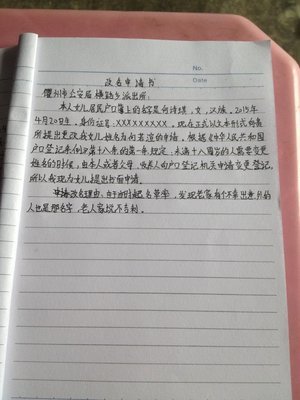 No.
Date
改名申请书
衢州市公安局横路乡派出所：
本人女儿居民户口簿上的名字是向诗琪，女，汉族。2015年
4月20日生，身份证号：XXXXXXXXXX。现在正式以文本形式向贵
所提出更改我女儿姓名为向若渲的申请，根据《中华人民共和国
户口登记条例》第十八条的第一条规定，未满十八周岁的人需要变更
姓名的时候，由本人或者父母、收养人向户口登记机关申请变更登记，
所以我现为女儿提出书面申请。
申请改名理由：由于当时起名草率，发现老家有个不出五服的
人也是那名字，老人家说不吉利。